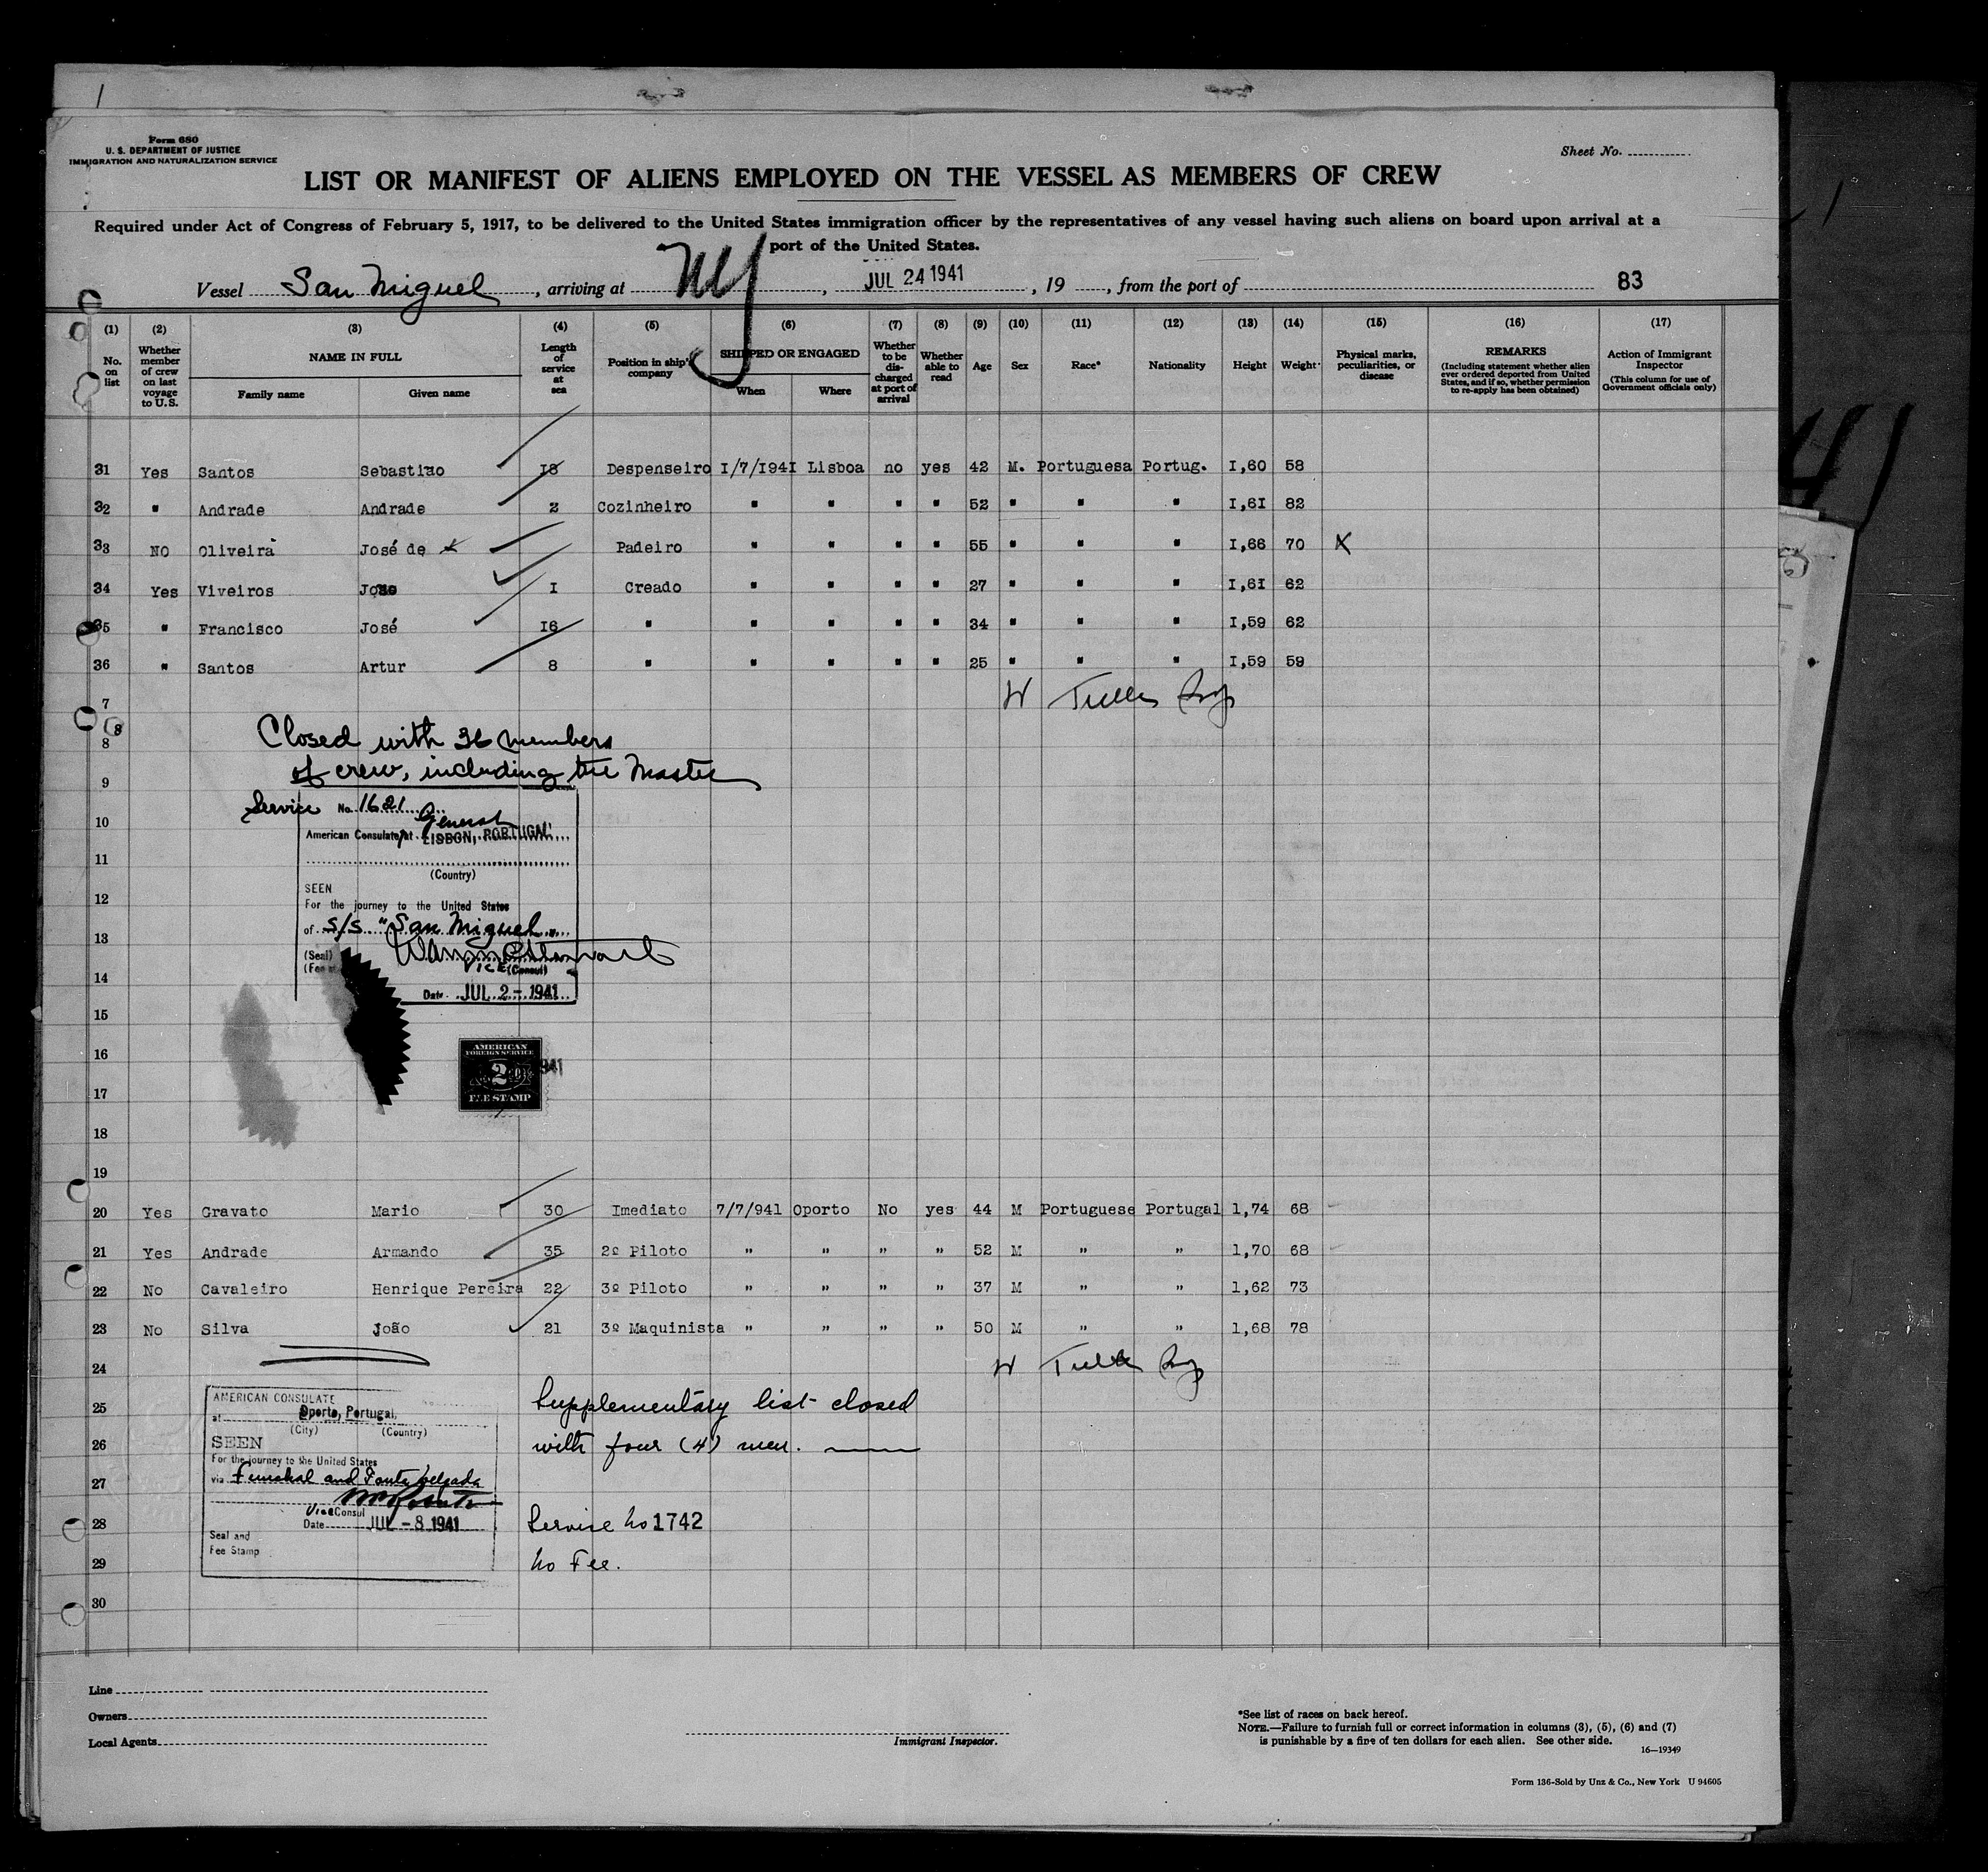 1
Form 680
U. S. DEPARTMENT OF JUSTICE
IMMIGRATION AND NATURALIZATION SERVICE
Sheet No.
LIST OR MANIFEST OF ALIENS EMPLOYED ON THE VESSEL AS MEMBERS OF CREW
Required under Act of Congress of February 5, 1917, to be delivered to the United States immigration officer by the representatives of any vessel having such aliens on board upon arrival at a
port of the United States.
Vessel San Miguel, arriving at NY, JUL 24 1941, 19, from the port of 83
(1) (2) (3) (4) (5) (6) (7) (8) (9) (10) (11) (12) (13) (14) (15) (16) (17)
No. on list
Whether member of crew on last voyage to U.S.
NAME IN FULL
Family name Given name
Length of service at sea
Position in ship's company
SHIPPED OR ENGAGED
When Where
Whether to be discharged at port of arrival
Whether able to read
Age Sex Race* Nationality Height Weight
Physical marks, peculiarities, or disease
REMARKS
(Including statement whether alien ever ordered deported from United States, and if so, whether permission to re-apply has been obtained)
Action of Immigrant Inspector
(This column for use of Government officials only)
31 Yes Santos Sebastiao 18 Despenseiro 1/7/1941 Lisboa no yes 42 M. Portuguesa Portug. 1,60 58
32 " Andrade Andrade 2 Cozinheiro " " " " 52 " " " 1,61 82
33 NO Oliveira José de Padeiro " " " " 55 " " " 1,66 70 X
34 Yes Viveiros João 1 Creado " " " " 27 " " " 1,61 62
35 " Francisco José 16 " " " " " 34 " " " 1,59 62
36 " Santos Artur 8 " " " " " 25 " " " 1,59 59
7
8
8
9
10
11
12
13
14
15
16
17
18
19
Closed with 36 members
of crew, including the Master
Service No. 1621
General
American Consulate at LISBON, PORTUGAL
(Country)
SEEN
For the journey to the United States
of S/S "San Miguel"
(Seal)
VICE (Consul)
Date JUL 2 - 1941
AMERICAN
FOREIGN SERVICE
2
FEE STAMP
1941
20 Yes Gravato Mario 30 Imediato 7/7/941 Oporto No yes 44 M Portuguese Portugal 1,74 68
21 Yes Andrade Armando 35 2º Piloto " " " " 52 M " " 1,70 68
22 No Cavaleiro Henrique Pereira 22 3º Piloto " " " " 37 M " " 1,62 73
23 No Silva João 21 3º Maquinista " " " " 50 M " " 1,68 78
24
25
26
27
28
29
30
AMERICAN CONSULATE
at Oporto, Portugal.
(City) (Country)
SEEN
For the journey to the United States
via Funchal and Ponta Delgada
Vice Consul
Date JUL - 8 1941
Seal and
Fee Stamp
Supplementary list closed
with four (4) men.
Service No 1742
No Fee.
Line
Owners
Local Agents
Immigrant Inspector.
*See list of races on back hereof.
NOTE.—Failure to furnish full or correct information in columns (3), (5), (6) and (7)
is punishable by a fine of ten dollars for each alien. See other side.
16—19349
Form 136-Sold by Unz & Co., New York U 94605